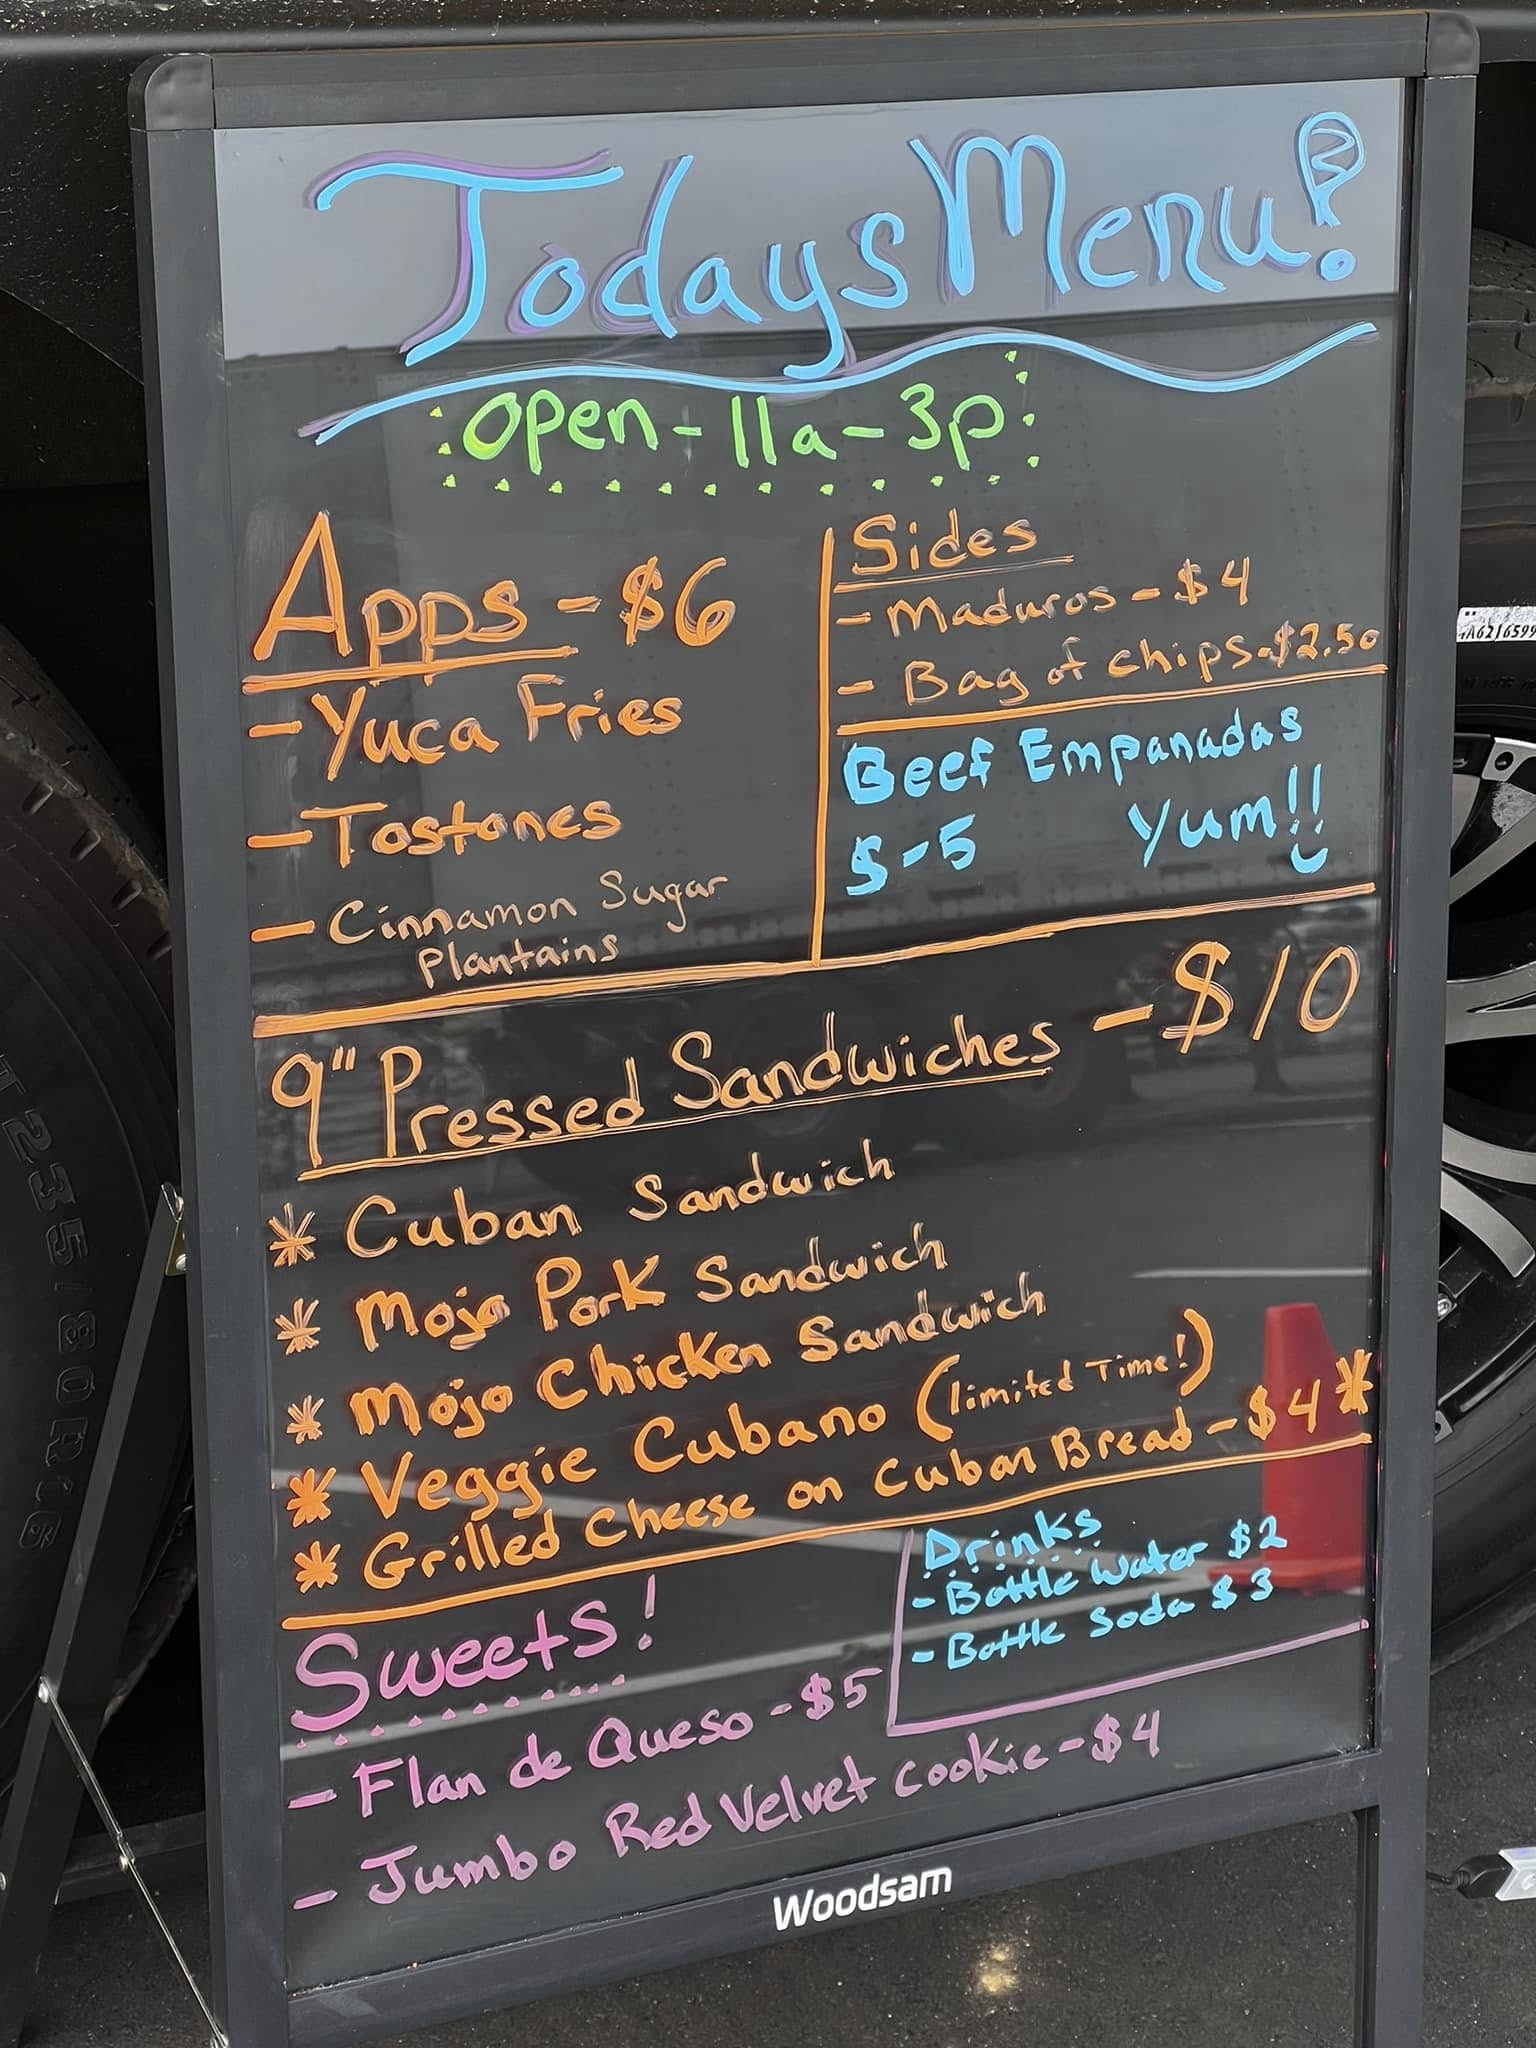 Todays Menu!
Open - 11a - 3p
Apps - $6
- Yuca Fries
- Tostones
- Cinnamon Sugar
Plantains
Sides
- Maduros - $4
- Bag of chips - $2.50
Beef Empanadas
$-5 Yum!!
9" Pressed Sandwiches - $10
* Cuban Sandwich
* Mojo Pork Sandwich
* Mojo Chicken Sandwich
* Veggie Cubano (limited Time!)
* Grilled Cheese on Cuban Bread - $4 *
Drinks
- Bottle Water $2
- Bottle Soda $3
Sweets!
- Flan de Queso - $5
- Jumbo Red Velvet Cookie - $4
Woodsam